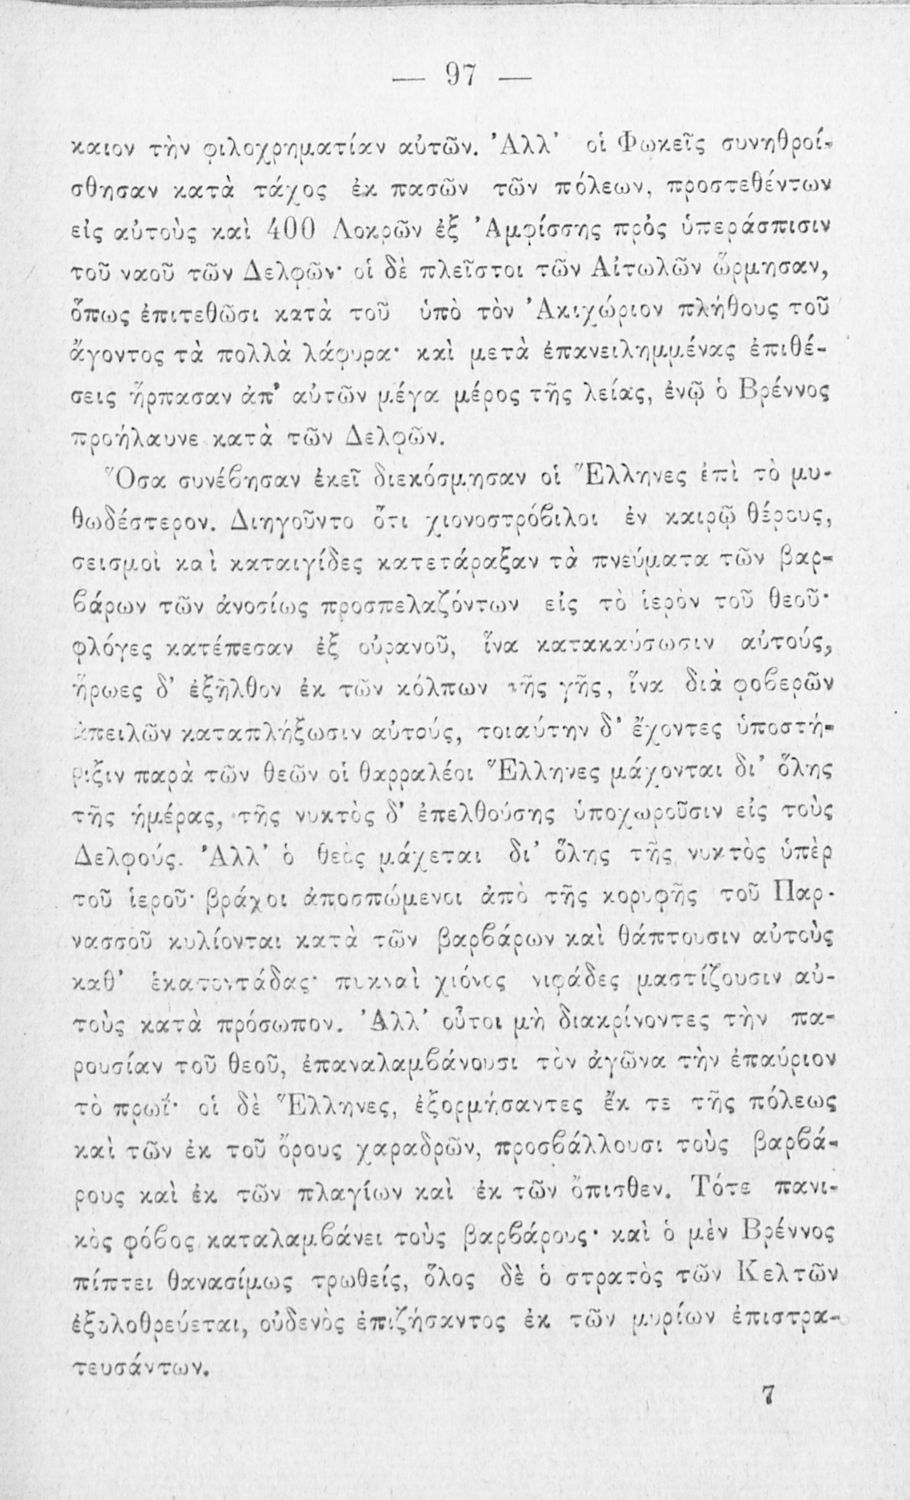 — 97 —
καιον τὴν φιλοχρηματίαν αὐτῶν. Ἀλλ' οἱ Φωκεῖς συνηθροί-
σθησαν κατὰ τάχος ἐκ πασῶν τῶν πόλεων, προστεθέντων
εἰς αὐτοὺς καὶ 400 Λοκρῶν ἐξ Ἀμφίσσης πρὸς ὑπεράσπισιν
τοῦ ναοῦ τῶν Δελφῶν· οἱ δὲ πλεῖστοι τῶν Αἰτωλῶν ὥρμησαν,
ὅπως ἐπιτεθῶσι κατὰ τοῦ ὑπὸ τὸν Ἀκιχώριον πλήθους τοῦ
ἄγοντος τὰ πολλὰ λάφυρα· καὶ μετὰ ἐπανειλημμένας ἐπιθέ-
σεις ἥρπασαν ἀπ' αὐτῶν μέγα μέρος τῆς λείας, ἐνῷ ὁ Βρέννος
προήλαυνε κατὰ τῶν Δελφῶν.
Ὅσα συνέβησαν ἐκεῖ διεκόσμησαν οἱ Ἕλληνες ἐπὶ τὸ μυ-
θωδέστερον. Διηγοῦντο ὅτι χιονοστρόβιλοι ἐν καιρῷ θέρους,
σεισμοὶ καὶ καταιγίδες κατετάραξαν τὰ πνεύματα τῶν βαρ-
βάρων τῶν ἀνοσίως προσπελαζόντων εἰς τὸ ἱερὸν τοῦ θεοῦ·
φλόγες κατέπεσαν ἐξ οὐρανοῦ, ἵνα κατακαύσωσιν αὐτούς,
ἥρωες δ' ἐξῆλθον ἐκ τῶν κόλπων τῆς γῆς, ἵνα διὰ φοβερῶν
ἀπειλῶν καταπλήξωσιν αὐτούς, τοιαύτην δ' ἔχοντες ὑποστή-
ριξιν παρὰ τῶν θεῶν οἱ θαρραλέοι Ἕλληνες μάχονται δι' ὅλης
τῆς ἡμέρας, τῆς νυκτὸς δ' ἐπελθούσης ὑποχωροῦσιν εἰς τοὺς
Δελφούς. Ἀλλ' ὁ θεὸς μάχεται δι' ὅλης τῆς νυκτὸς ὑπὲρ
τοῦ ἱεροῦ· βράχοι ἀποσπώμενοι ἀπὸ τῆς κορυφῆς τοῦ Παρ-
νασσοῦ κυλίονται κατὰ τῶν βαρβάρων καὶ θάπτουσιν αὐτοὺς
καθ' ἑκατοντάδας· πυκναὶ χιόνος νιφάδες μαστίζουσιν αὐ-
τοὺς κατὰ πρόσωπον. Ἀλλ' οὗτοι μὴ διακρίνοντες τὴν πα-
ρουσίαν τοῦ θεοῦ, ἐπαναλαμβάνουσι τὸν ἀγῶνα τὴν ἐπαύριον
τὸ πρωΐ· οἱ δὲ Ἕλληνες, ἐξορμήσαντες ἔκ τε τῆς πόλεως
καὶ τῶν ἐκ τοῦ ὄρους χαραδρῶν, προσβάλλουσι τοὺς βαρβά-
ρους καὶ ἐκ τῶν πλαγίων καὶ ἐκ τῶν ὄπισθεν. Τότε πανι-
κὸς φόβος καταλαμβάνει τοὺς βαρβάρους· καὶ ὁ μὲν Βρέννος
πίπτει θανασίμως τρωθείς, ὅλος δὲ ὁ στρατὸς τῶν Κελτῶν
ἐξολοθρεύεται, οὐδενὸς ἐπιζήσαντος ἐκ τῶν μυρίων ἐπιστρα-
τευσάντων.
7